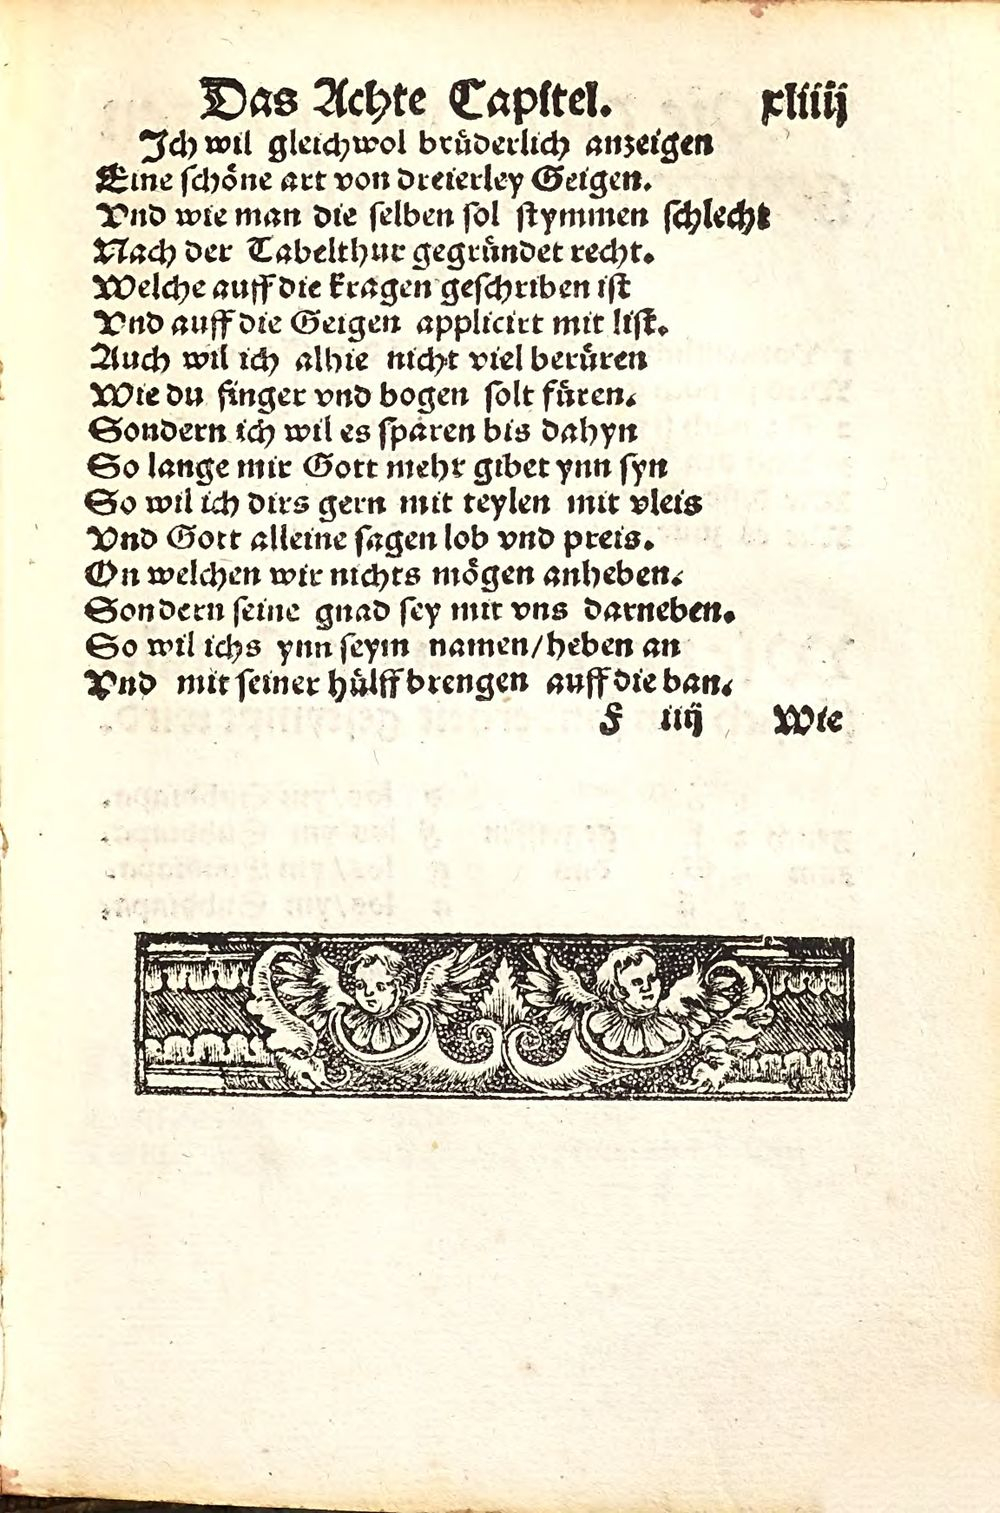 Das Achte Capitel. xliiij
Ich wil gleichwol brüderlich anzeigen
Eine schöne art von dreierley Geigen.
Vnd wie man die selben sol stymmen schlecht
Nach der Tabelthur gegründet recht.
Welche auff die kragen geschriben ist
Vnd auff die Geigen applicirt mit list.
Auch wil ich alhie nicht viel berüren
Wie du finger vnd bogen solt füren.
Sondern ich wil es sparen bis dahyn
So lange mir Gott mehr gibet ynn syn
So wil ich dirs gern mit teylen mit vleis
Vnd Gott alleine sagen lob vnd preis.
On welchen wir nichts mögen anheben.
Sondern seine gnad sey mit vns darneben.
So wil ichs ynn seym namen/heben an
Vnd mit seiner hülff brengen auff die ban.
F iiij Wie